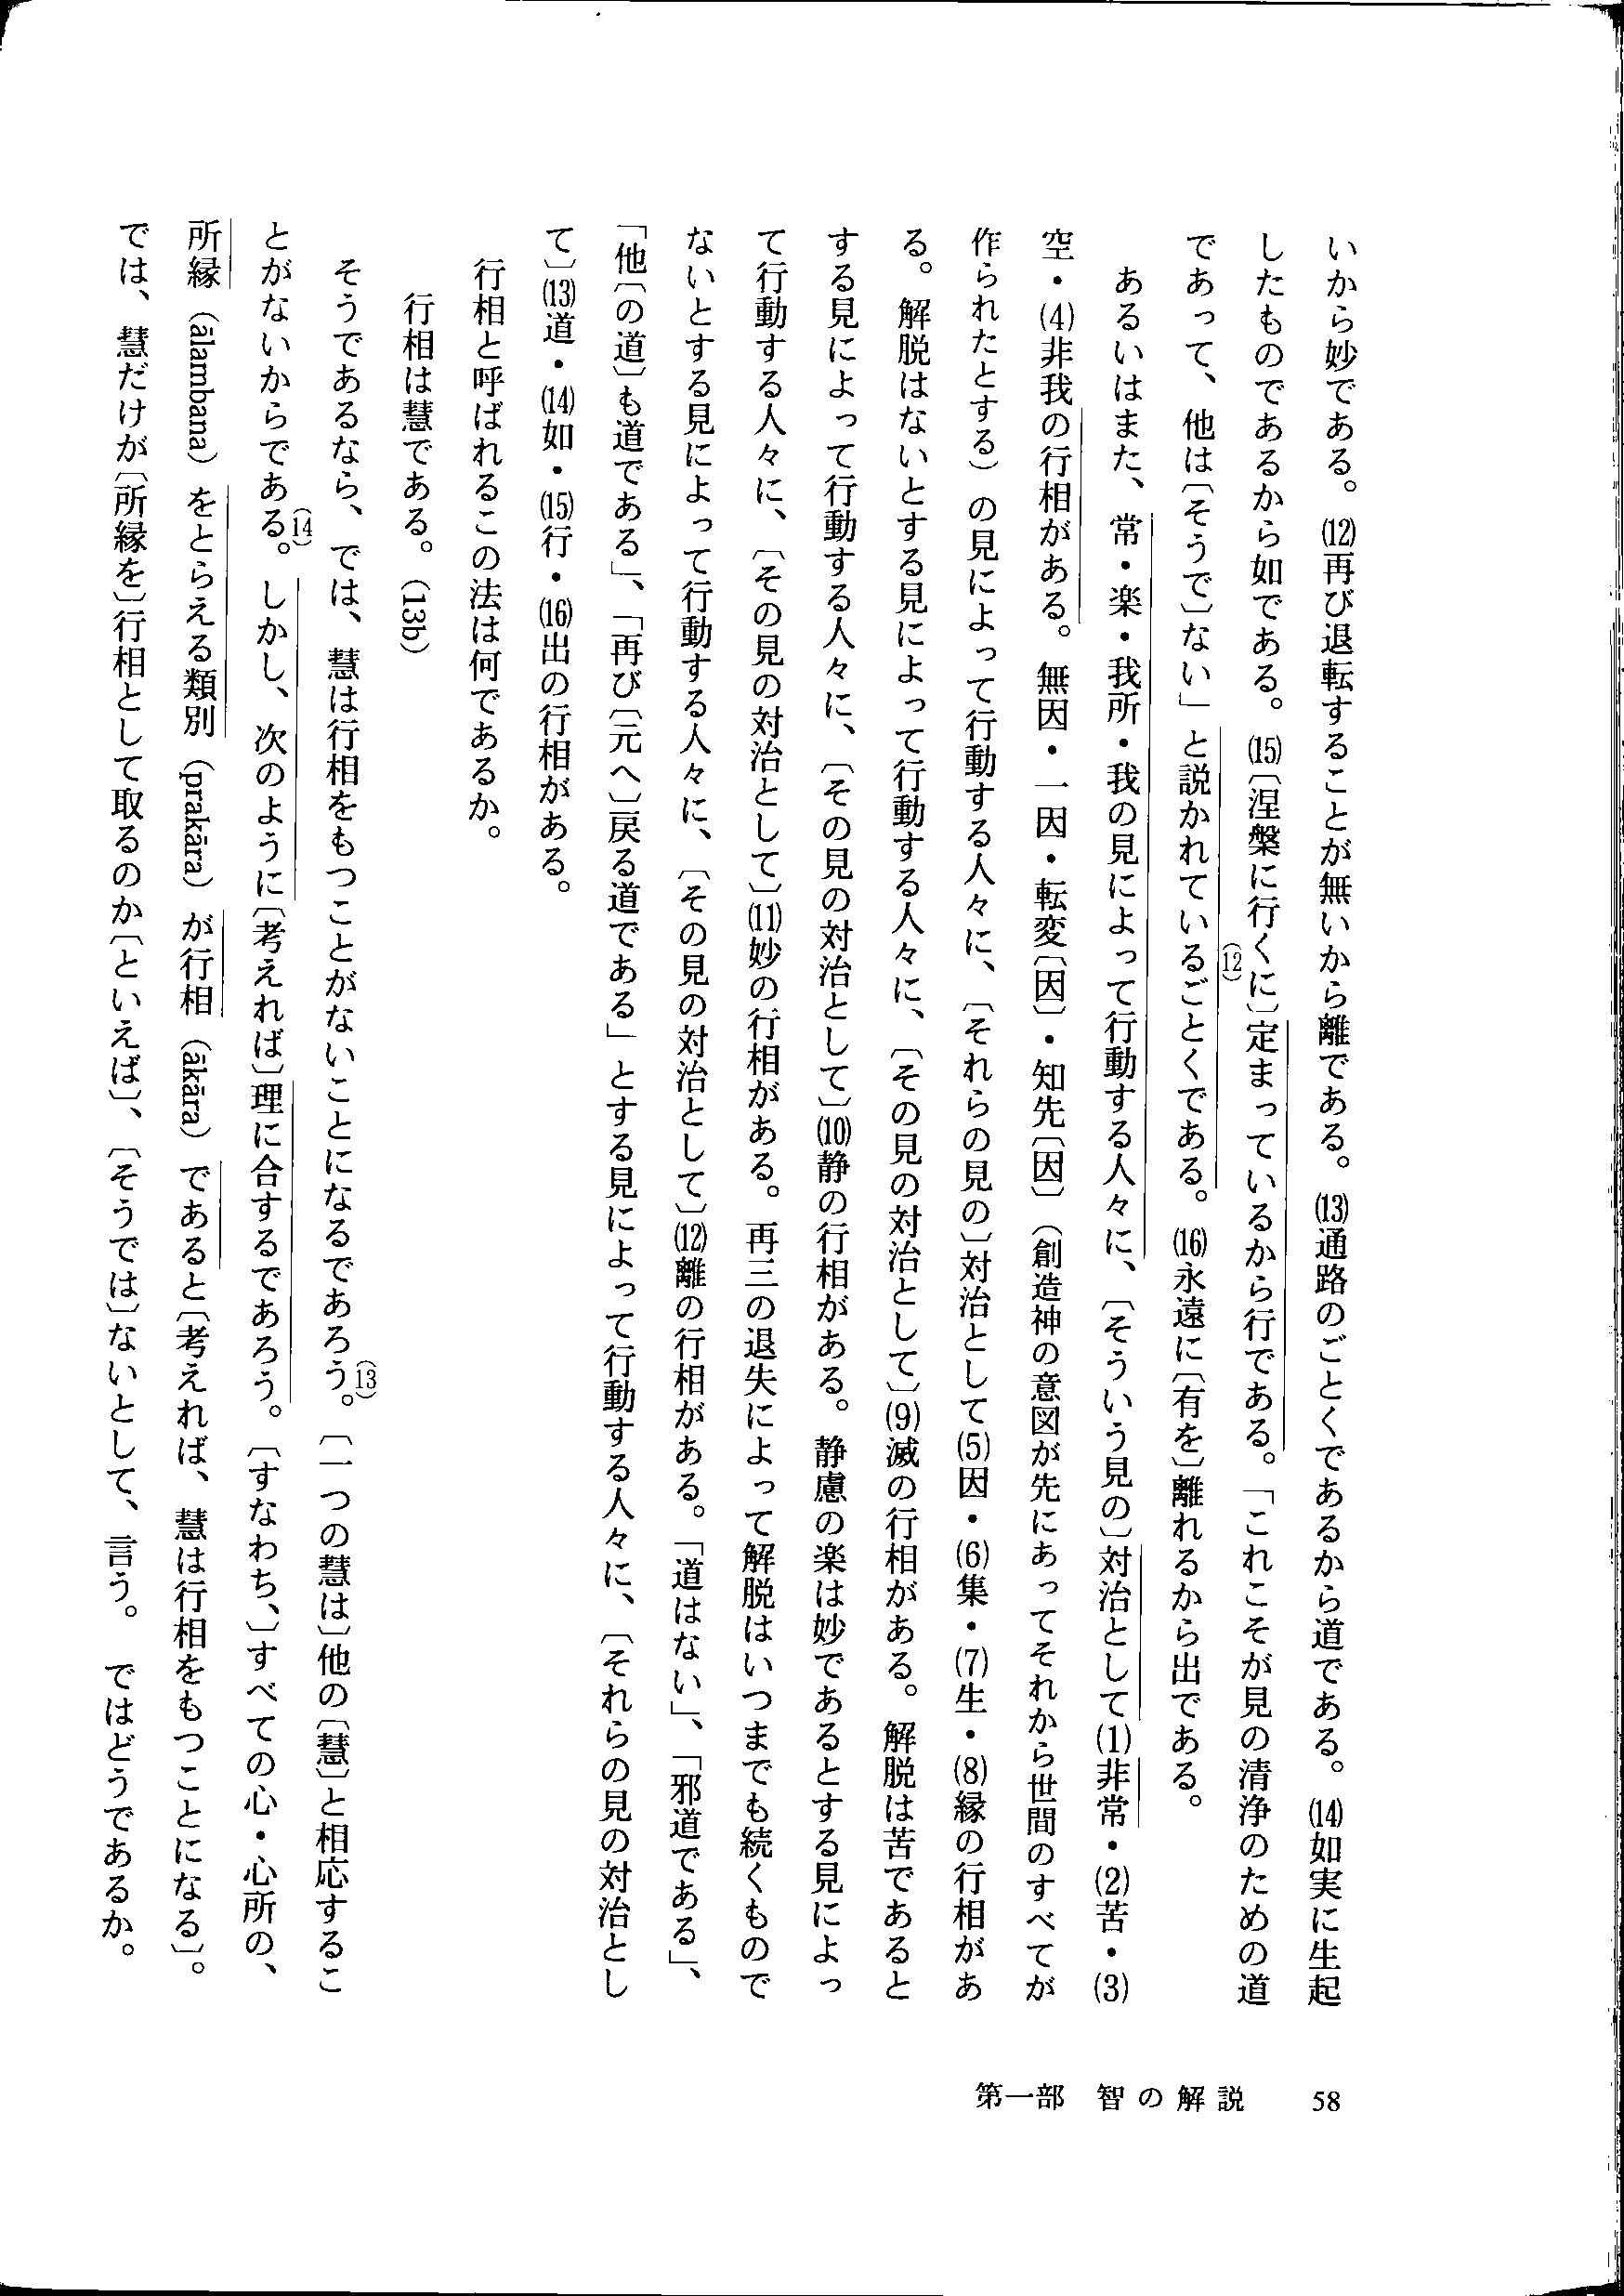 いから妙である。(12)再び退転することが無いから離である。(13)通路のごとくであるから道である。(14)如実に生起
したものであるから如である。(15)〔涅槃に行くに〕定まっているから行である。「これこそが見の清浄のための道
であって、他は〔そうで〕ない」と説かれているごとくである。(12)(16)永遠に〔有を〕離れるから出である。
あるいはまた、常・楽・我所・我の見によって行動する人々に、〔そういう見の〕対治として(1)非常・(2)苦・(3)
空・(4)非我の行相がある。無因・一因・転変〔因〕・知先〔因〕(創造神の意図が先にあってそれから世間のすべてが
作られたとする)の見によって行動する人々に、〔それらの見の〕対治として(5)因・(6)集・(7)生・(8)縁の行相があ
る。解脱はないとする見によって行動する人々に、〔その見の対治として〕(9)滅の行相がある。解脱は苦であると
する見によって行動する人々に、〔その見の対治として〕(10)静の行相がある。静慮の楽は妙であるとする見によっ
て行動する人々に、〔その見の対治として〕(11)妙の行相がある。再三の退失によって解脱はいつまでも続くもので
ないとする見によって行動する人々に、〔その見の対治として〕(12)離の行相がある。「道はない」、「邪道である」、
「他〔の道〕も道である」、「再び〔元へ〕戻る道である」とする見によって行動する人々に、〔それらの見の対治とし
て〕(13)道・(14)如・(15)行・(16)出の行相がある。
行相と呼ばれるこの法は何であるか。
行相は慧である。(13b)
そうであるなら、では、慧は行相をもつことがないことになるであろう。(13)〔一つの慧は〕他の〔慧〕と相応するこ
とがないからである。(14)しかし、次のように〔考えれば〕理に合するであろう。〔すなわち、〕すべての心・心所の、
所縁(ālambana)をとらえる類別(prakāra)が行相(ākāra)であると〔考えれば、慧は行相をもつことになる〕。
では、慧だけが〔所縁を〕行相として取るのか〔といえば〕、〔そうでは〕ないとして、言う。ではどうであるか。
第一部 智の解説 58